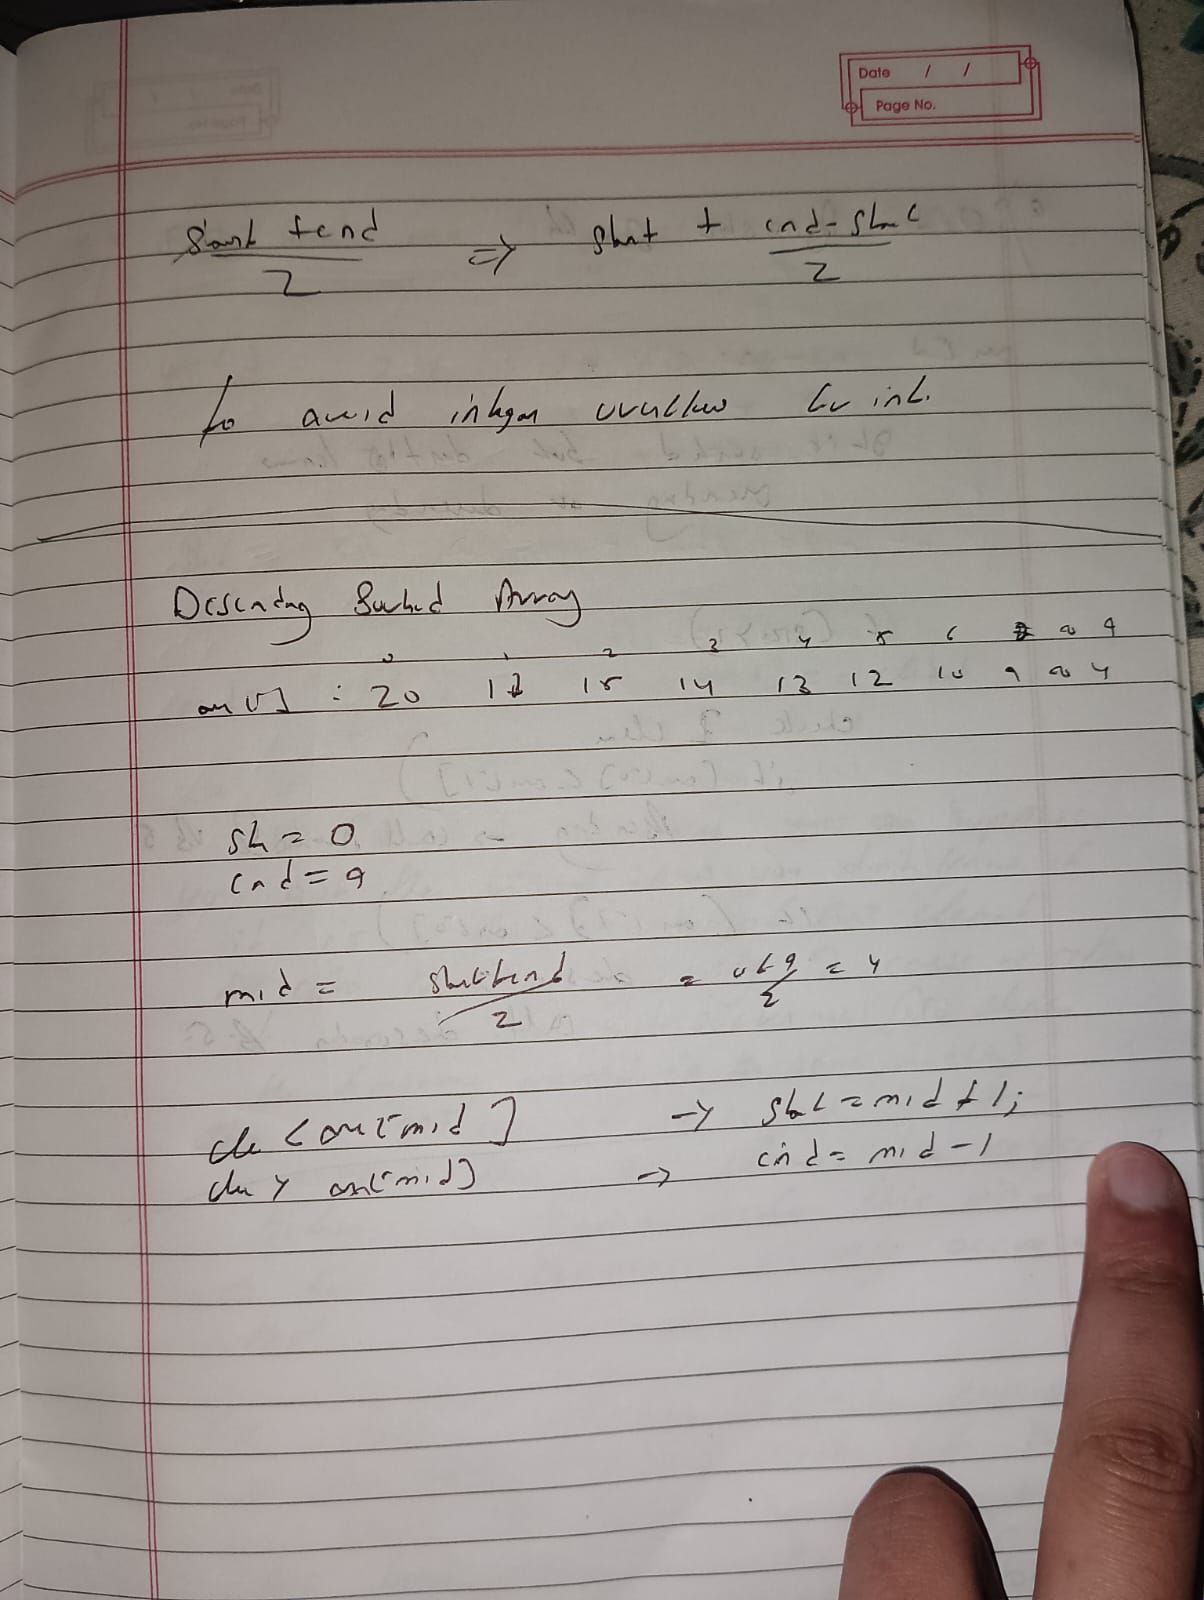 Date / /
Page No.
Start + end / 2 ⇒ Start + end - start / 2
to avoid integer overflow for int.
Descending Sorted Array
0 1 2 3 4 5 6 8 9
arr[] : 20 15 14 13 12 10 9 8 4
st = 0
end = 9
mid = start + end / 2 = 0 + 9 / 2 = 4
ele < arr[mid] → start = mid + 1;
ele > arr[mid] → end = mid - 1